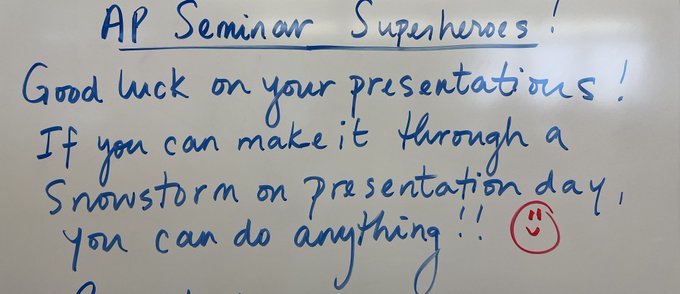 AP Seminar Superheroes!
Good luck on your presentations!
If you can make it through a
Snowstorm on presentation day,
you can do anything!!